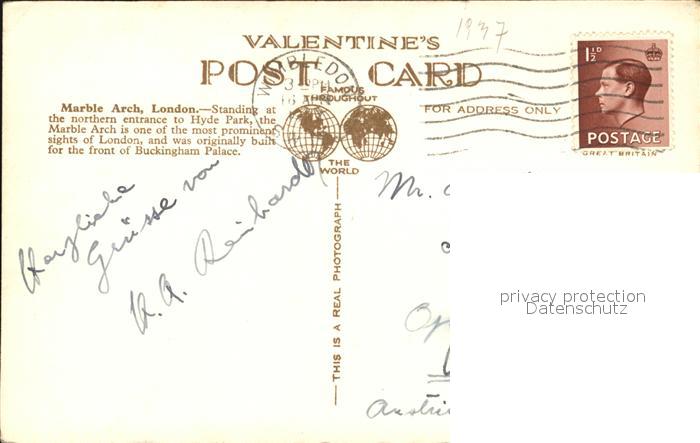 1937
VALENTINE'S
POST CARD
WIMBLEDON
3 PM
FAMOUS
THROUGHOUT
THE
WORLD
FOR ADDRESS ONLY
1½D
POSTAGE
GREAT BRITAIN
Marble Arch, London.—Standing at
the northern entrance to Hyde Park, the
Marble Arch is one of the most prominent
sights of London, and was originally built
for the front of Buckingham Palace.
Herzliche
Grüsse von
Reinhardt
— THIS IS A REAL PHOTOGRAPH —
Mr.
privacy protection
Datenschutz